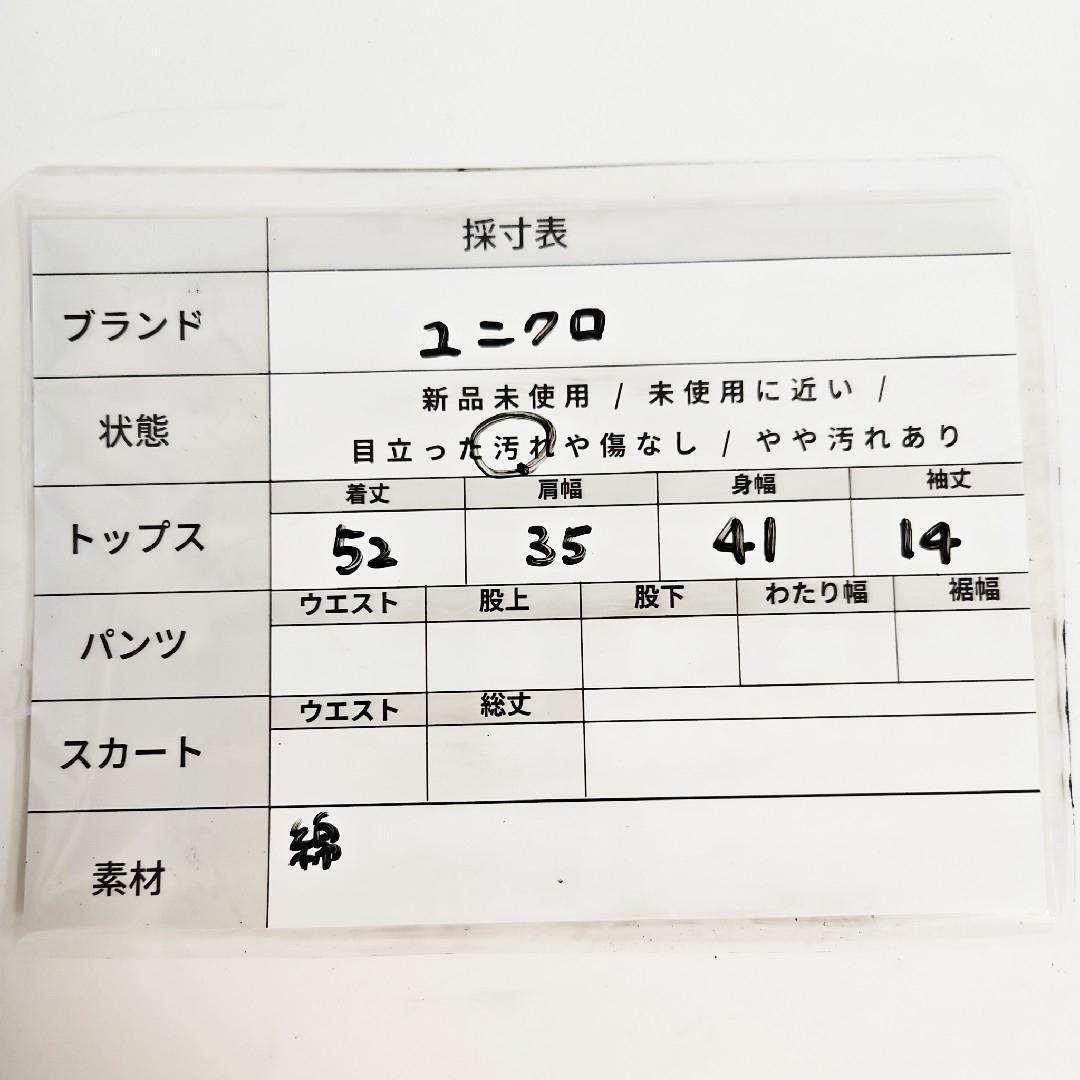 採寸表
ブランド ユニクロ
状態 新品未使用 / 未使用に近い /
目立った汚れや傷なし / やや汚れあり
着丈 肩幅 身幅 袖丈
トップス 52 35 41 14
ウエスト 股上 股下 わたり幅 裾幅
パンツ
ウエスト 総丈
スカート
素材 綿